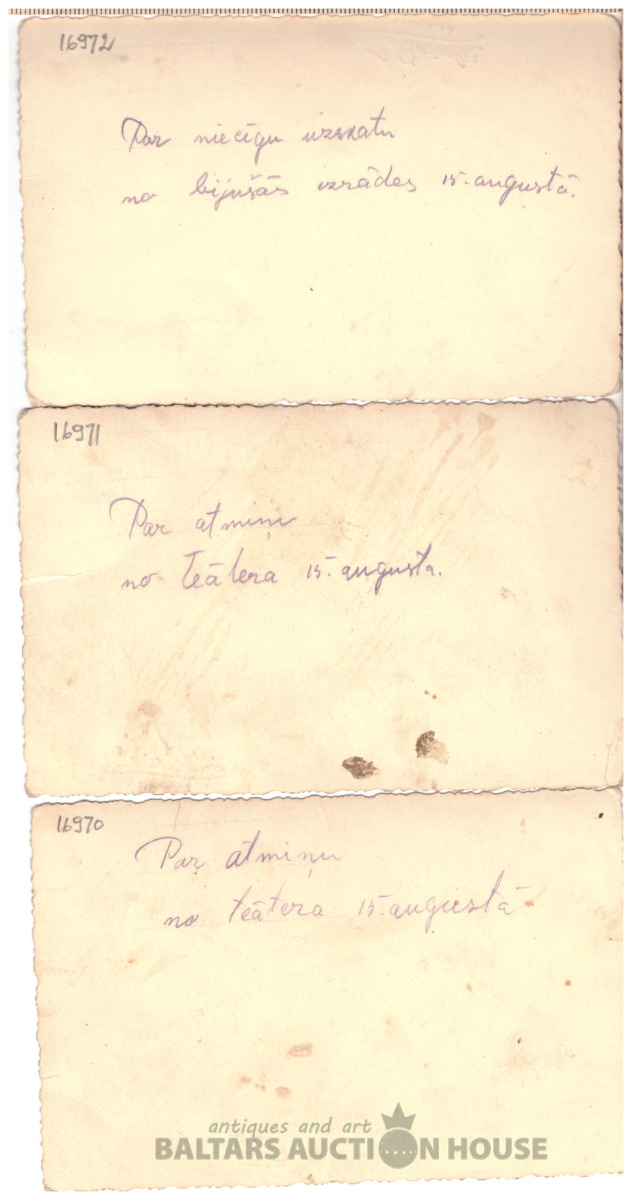 16972
Par niecīgu uzskatu
no bijušās izrādes 15. augustā.
16971
Par atmiņu
no teātera 15. augusta.
16970
Par atmiņu
no teātera 15. augustā
antiques and art
BALTARS AUCTION HOUSE